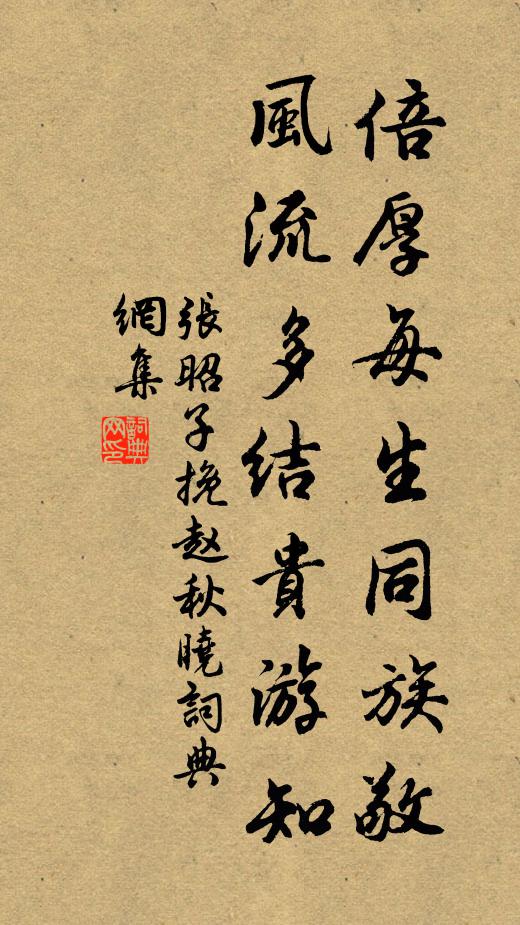 倍厚每生同族敬
風流多结貴游知
張昭子挽赵秋曉詞典
網集
詞典网印